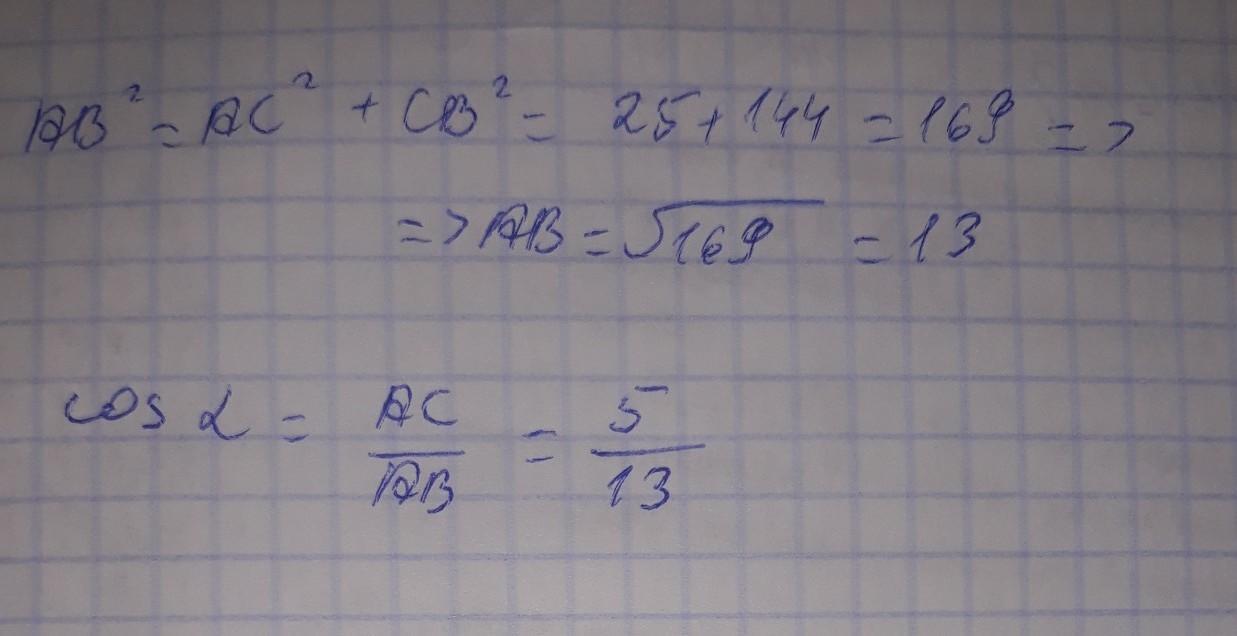 AB² = AC² + CB² = 25 + 144 = 169 =>
=> AB = √169 = 13
cos α = AC/AB = 5/13